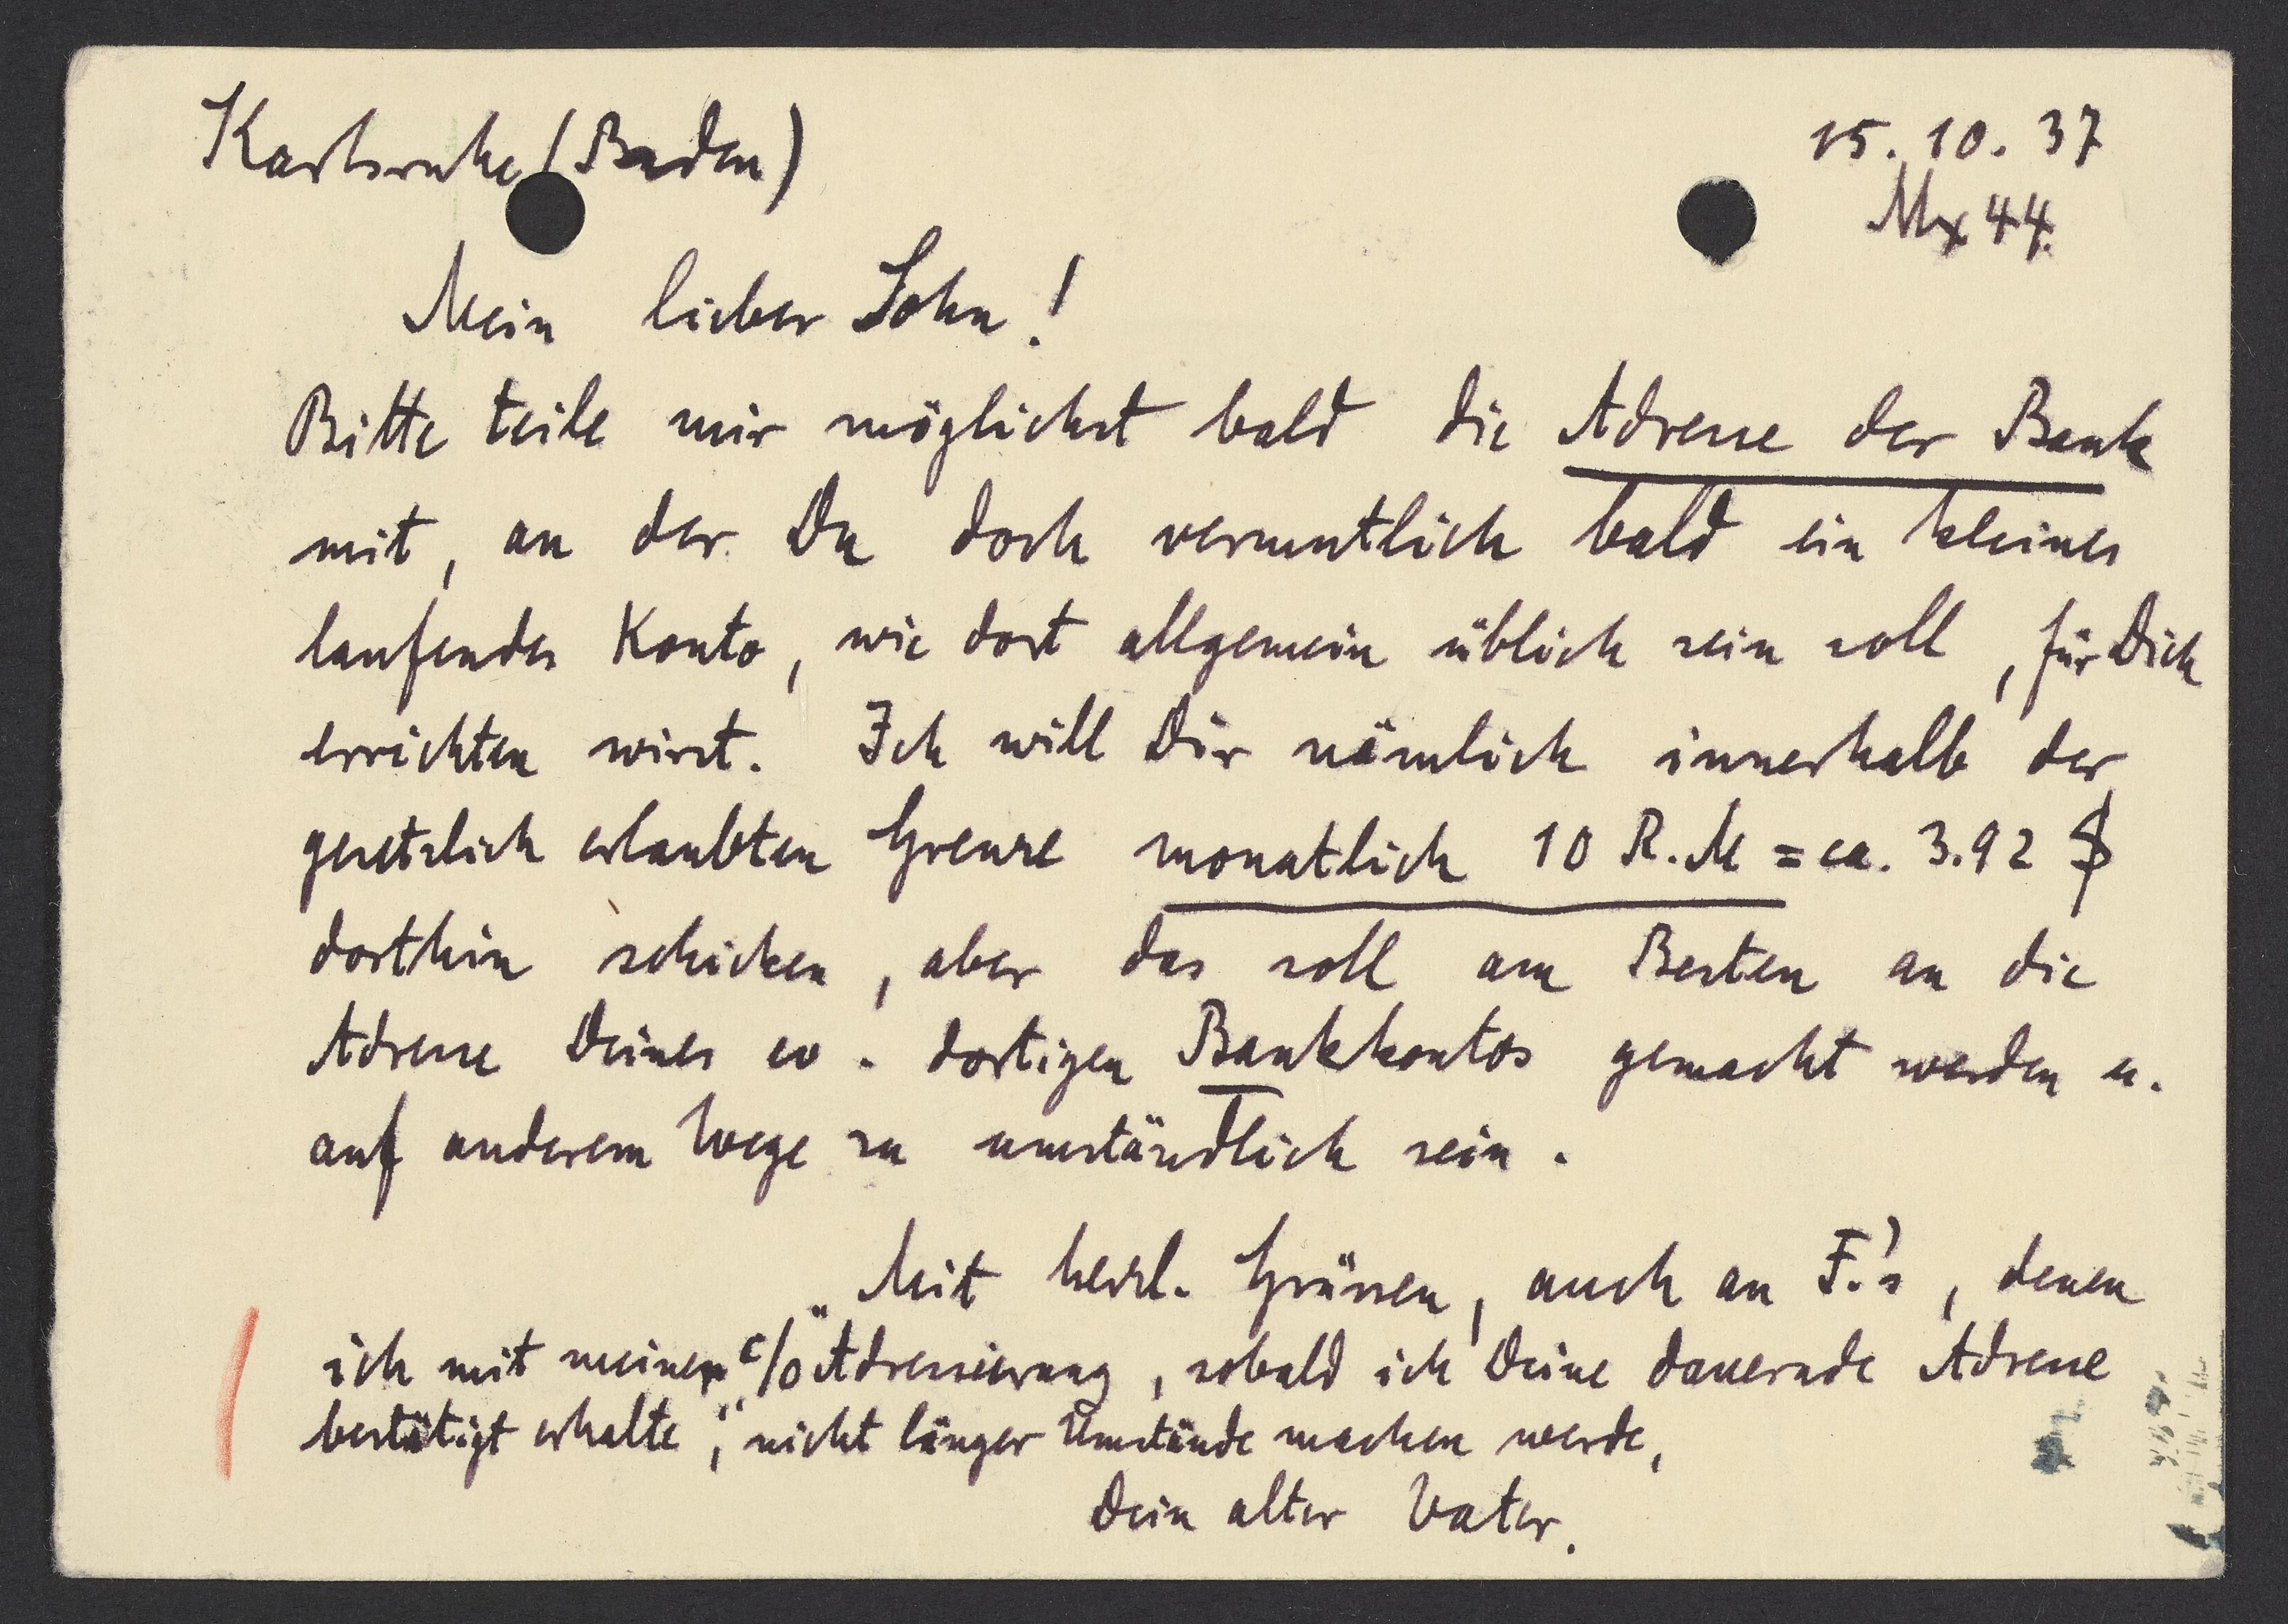 Karlsruhe (Baden)
15. 10. 37
Mx 44.
Mein lieber Sohn!
Bitte teile mir möglichst bald die Adresse der Bank
mit, an der Du doch vermutlich bald ein kleines
laufendes Konto, wie dort allgemein üblich sein soll, für Dich
errichten wirst. Ich will Dir nämlich innerhalb der
gesetzlich erlaubten Grenze monatlich 10 R.M = ca. 3.92 $
dorthin schicken, aber das soll am Besten an die
Adresse Deines ev. dortigen Bankkontos gemacht werden u.
auf anderem Wege zu umständlich sein.
Mit herzl. Grüssen, auch an F.'s, denen
ich mit meiner "c/o Adressierung, sobald ich Deine dauernde Adresse
bestätigt erhalte," nicht länger Umstände machen werde,
Dein alter Vater.